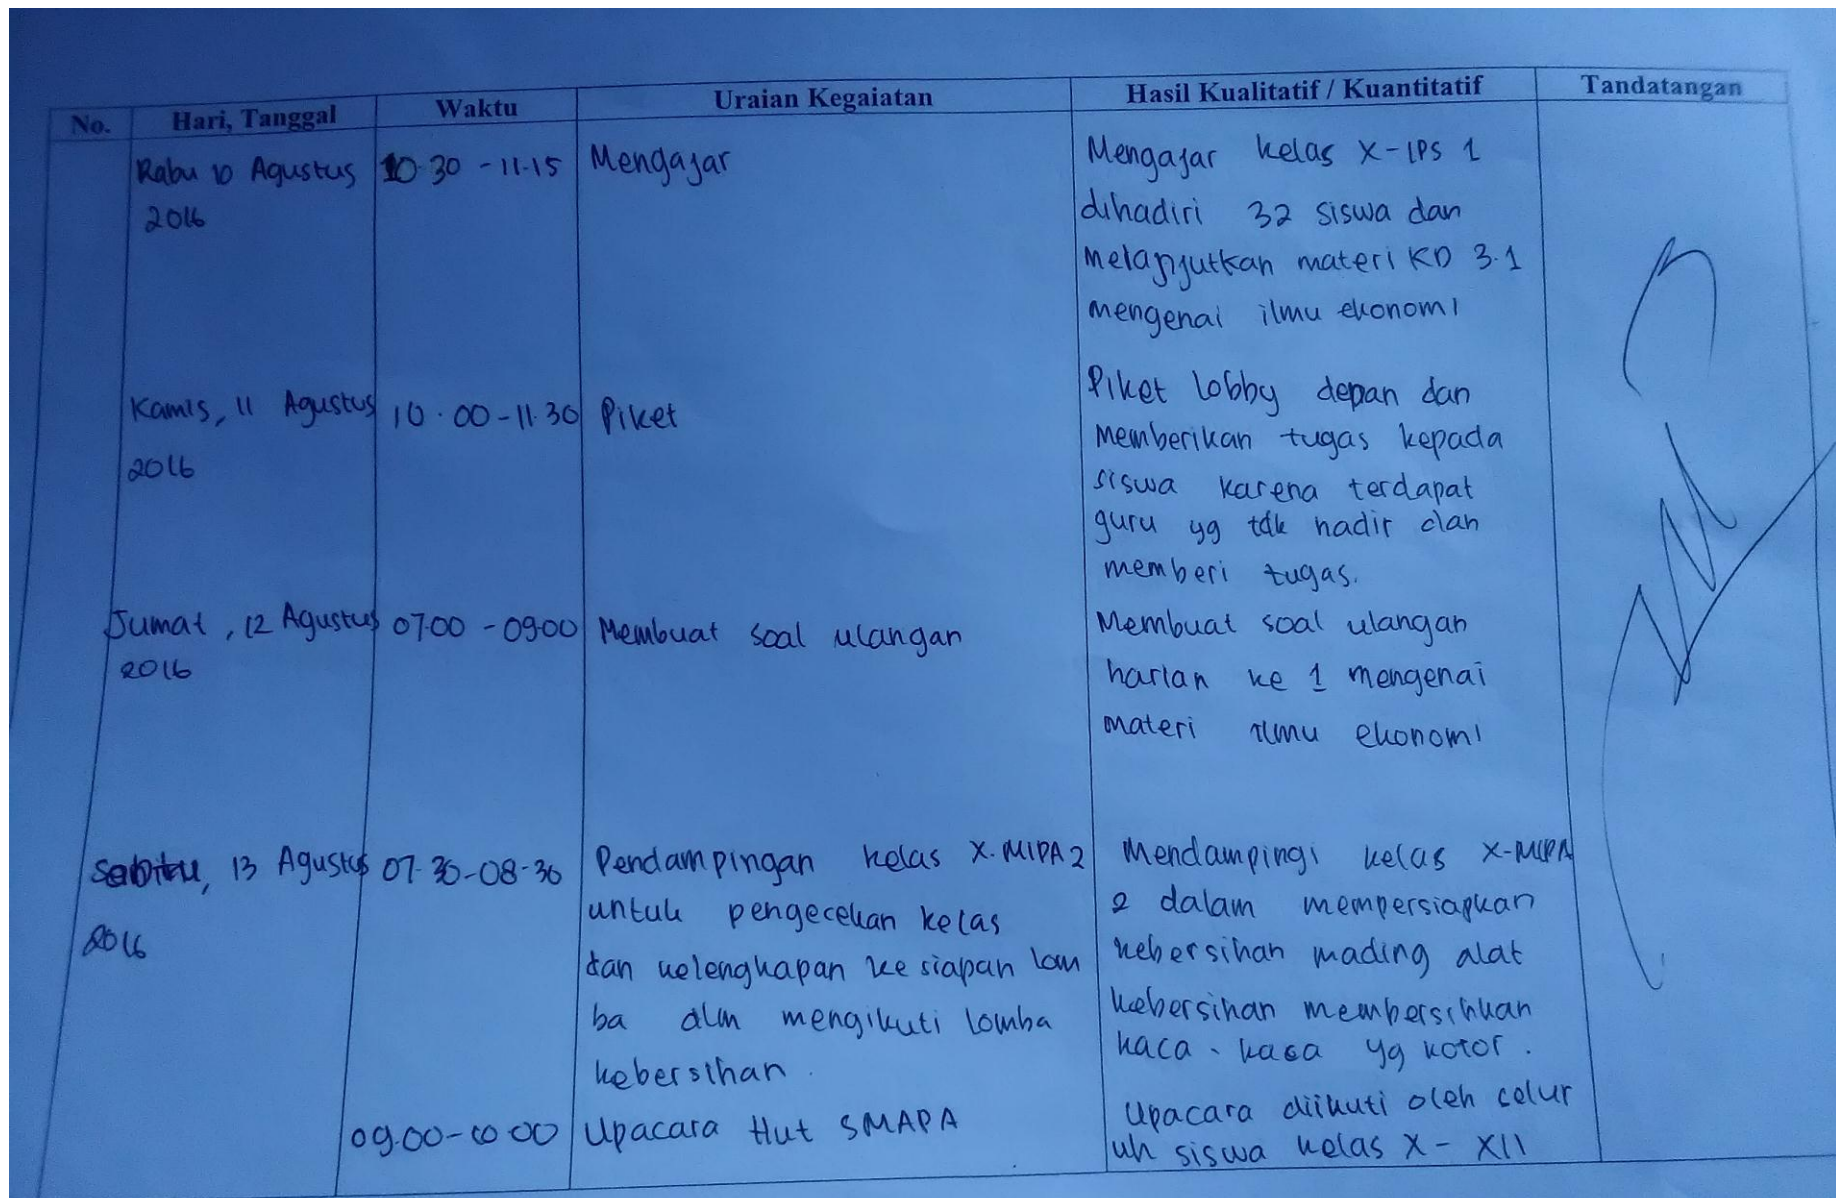 No. Hari, Tanggal Waktu Uraian Kegaiatan Hasil Kualitatif / Kuantitatif Tandatangan
Rabu 10 Agustus 10.30 - 11.15 Mengajar Mengajar kelas X-IPS 1
2016 dihadiri 32 siswa dan
melanjutkan materi KD 3.1
mengenai ilmu ekonomi
Kamis, 11 Agustus 10.00 - 11.30 Piket Piket lobby depan dan
2016 memberikan tugas kepada
siswa karena terdapat
guru yg tdk hadir dan
memberi tugas.
Jumat, 12 Agustus 07.00 - 09.00 Membuat soal ulangan Membuat soal ulangan
2016 harian ke 1 mengenai
materi ilmu ekonomi
Sabtu, 13 Agustus 07.30-08-30 Pendampingan kelas X.MIPA 2 Mendampingi kelas X-MIPA
2016 untuk pengecekan kelas 2 dalam mempersiapkan
dan kelengkapan kesiapan lom kebersihan mading alat
ba dlm mengikuti lomba kebersihan membersihkan
kebersihan. kaca-kaca yg kotor.
09.00-10.00 Upacara Hut SMAPA Upacara diikuti oleh selur
uh siswa kelas X - XII